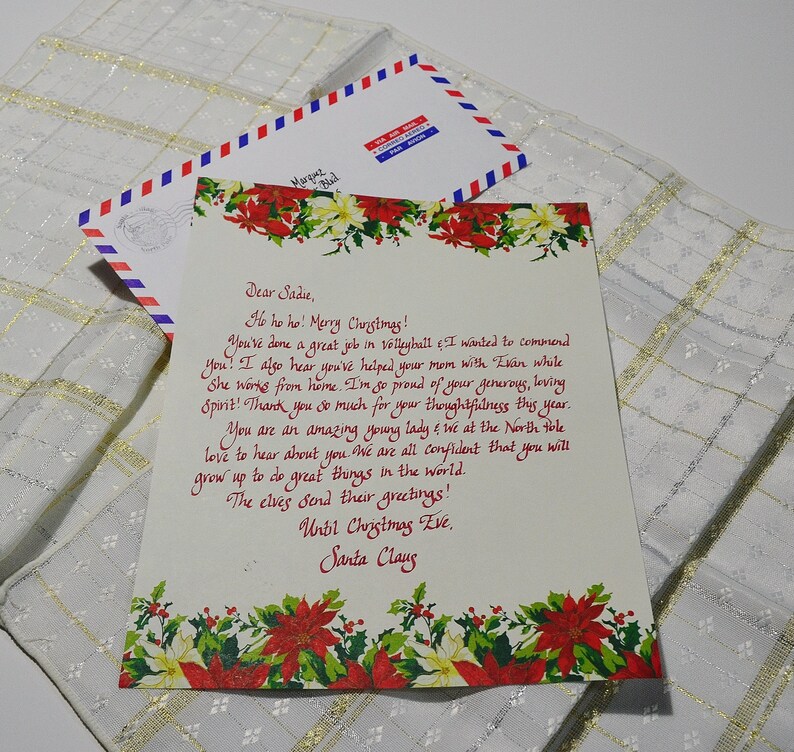 VIA AIR MAIL
CORREO AEREO
PAR AVION
Marquez
Blvd
Dear Sadie,
Ho ho ho! Merry Christmas!
You've done a great job in volleyball & I wanted to commend
you! I also hear you've helped your mom with Evan while
she works from home. I'm so proud of your generous, loving
spirit! Thank you so much for your thoughtfulness this year.
You are an amazing young lady & we at the North Pole
love to hear about you. We are all confident that you will
grow up to do great things in the world.
The elves send their greetings!
Until Christmas Eve,
Santa Claus